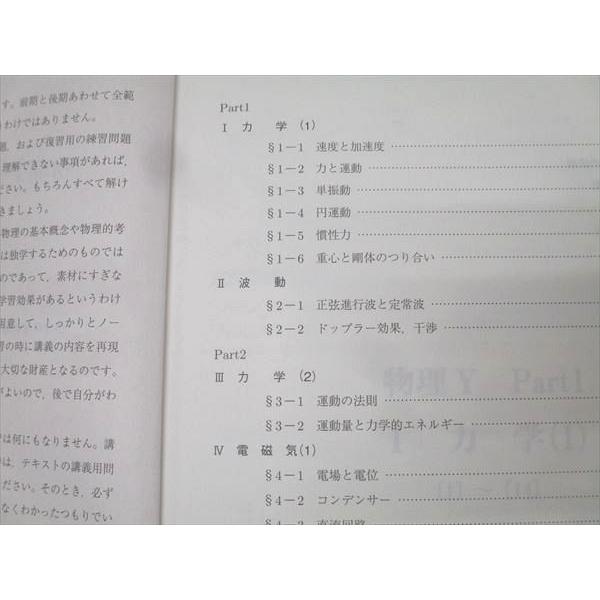 す。前期と後期あわせて全範
わけではありません。
題、および復習用の練習問題
理解できない事項があれば、
ださい。もちろんすべて解け
きましょう。
物理の基本概念や物理的考
は独学するためのものでは
のであって、素材にすぎな
学習効果があるというわけ
用意して、しっかりとノー
習の時に講義の内容を再現
大切な財産となるのです。
がよいので、後で自分がわ
では何にもなりません。講
は、テキストの講義用問
ださい。そのとき、必ず
なくわかったつもりでい
Part1
Ⅰ 力 学(1)
§1−1 速度と加速度
§1−2 力と運動
§1−3 単振動
§1−4 円運動
§1−5 慣性力
§1−6 重心と剛体のつり合い
Ⅱ 波 動
§2−1 正弦進行波と定常波
§2−2 ドップラー効果、干渉
Part2
Ⅲ 力 学(2)
§3−1 運動の法則
§3−2 運動量と力学的エネルギー
Ⅳ 電 磁 気(1)
§4−1 電場と電位
§4−2 コンデンサー
§4−3 直流回路
物理Y Part1
Ⅰ 力 学(1)